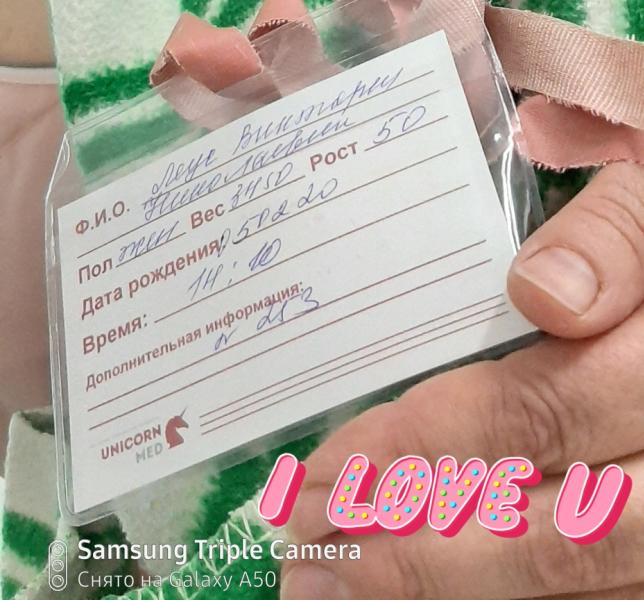 Ф.И.О. Виктории
Николаевны
Пол жен Вес 3450 Рост 50
Дата рождения 050220
Время: 14:10
Дополнительная информация:
N 253
UNICORN
MED
I LOVE U
Samsung Triple Camera
Снято на Galaxy A50